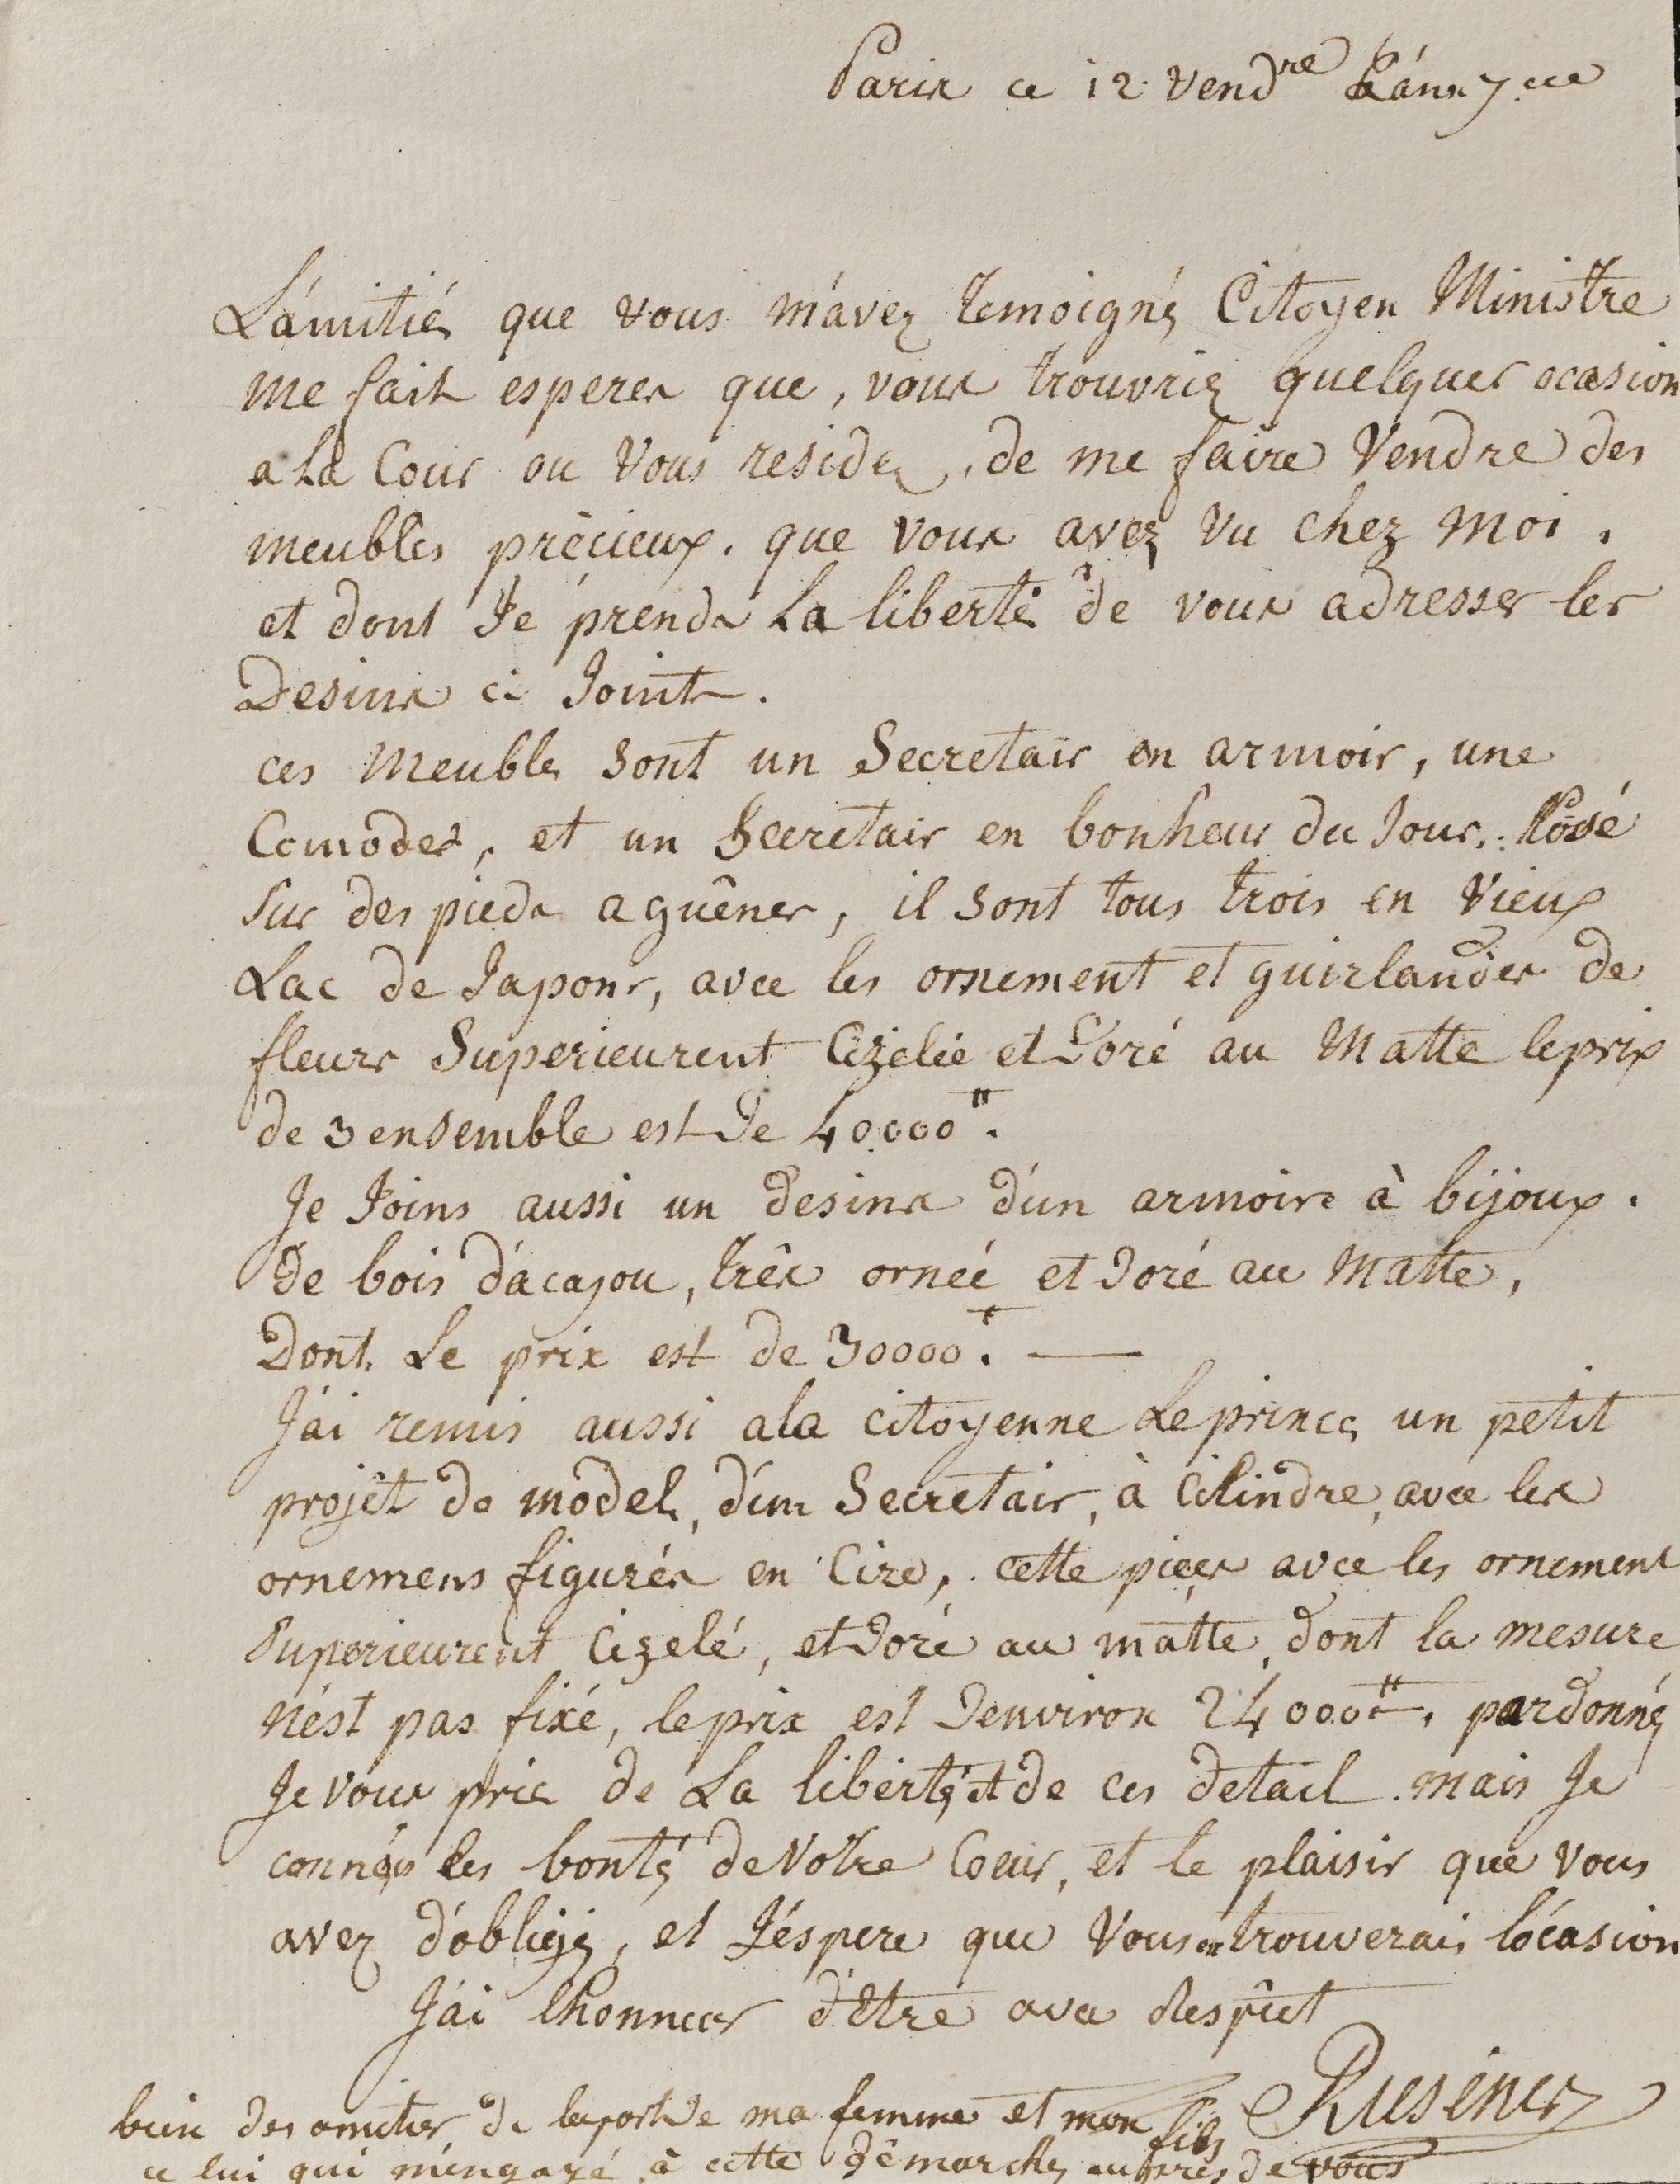 Paris ce 12 Vend^re L'ánn 7.eme
L'ámitiés que vous m'ávez temoigné, Citoyen Ministre
me fait esperer que, vous trouvriez quelques ocasion
a La Cour ou Vous residez, de me faire Vendre des
meubles précieux. que vous avez vu chez moi.
et dont Je prends La liberté de vous adresser les
Desins ci Joints.
ces Meubles sont un Secretair en armoir, une
Comodes, et un Secretair en bonheur du Jour, Posé
sur des pieds a guênes, il sont tous trois en Vieux
Lac de Japons, avec les ornement et guirlandes de
fleurs Superieurent Cizelée et Doré au Matte le prix
de 3 ensemble est De 40000#.
Je Joins aussi un desins d'un armoire à bijoux.
De bois d'ácajou, três ornéé et Doré au Matte,
Dont Le prix est de 30000#. —
J'ai remis aussi a la Citoyenne Leprince un petit
projêt de model, d'un Secretair, à Cilindre, avec les
ornemens figurés en Cire, cette pieces avec les ornement
Superieurent Cizelé, et Doré au matte, dont la mesure
n'ést pas fixé, le prix est D'environ 24000#. pardonnéz
Je vous prie de La libertéz et de ces detail. mais Je
connais les bontéz de Votre Coeur, et le plaisir que vous
avez d'óbligéz, et J'éspere que Vous en trouverais l'ócasion
J'ai l'honneur d'Etre avec Respêct
Riesener
bien des amitier de la part de ma femme et mon fils
ce lui qui m'éngagé à cette démarche auprès de vous